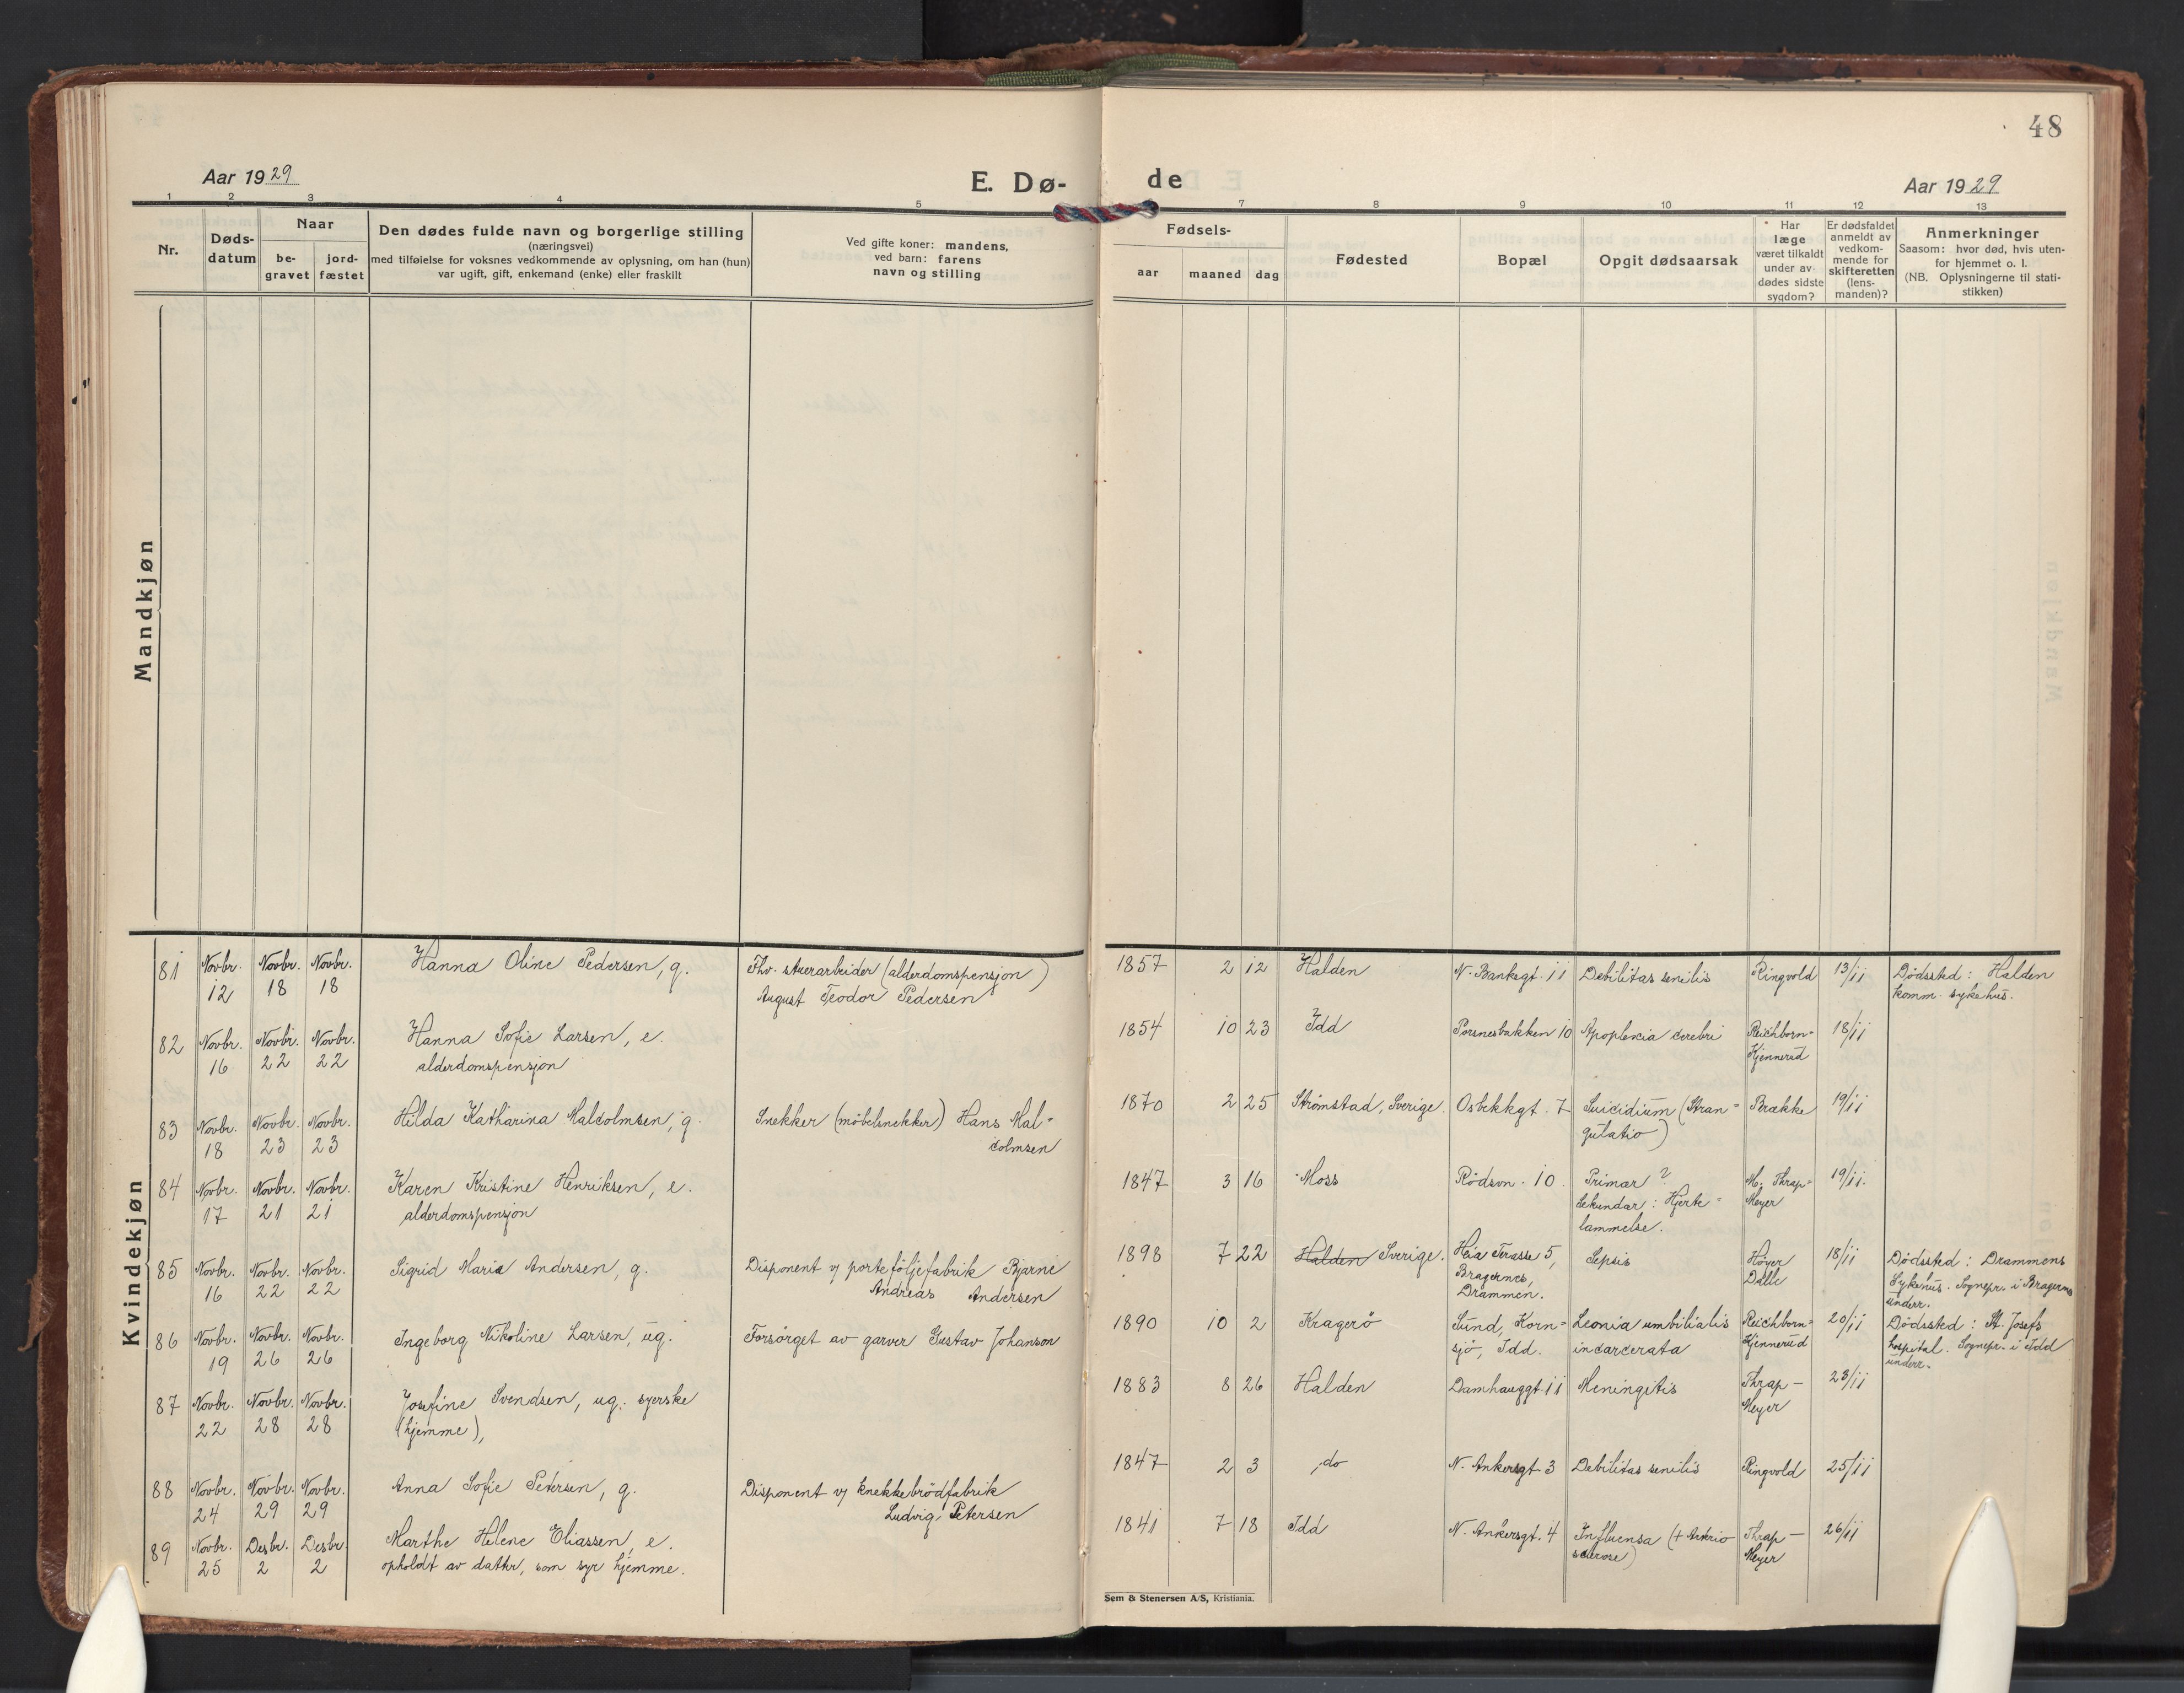 48
Aar 1929
E. Dø-
de
Aar 1929
1 2 3 4 5 7 8 9 10 11 12 13
Nr.
Døds-
datum
Naar
be-
gravet
jord-
fæstet
Den dødes fulde navn og borgerlige stilling
(næringsvei)
med tilføielse for voksnes vedkommende av oplysning, om han (hun)
var ugift, gift, enkemand (enke) eller fraskilt
Ved gifte koner: mandens,
ved barn: farens
navn og stilling
Fødsels-
aar
maaned
dag
Fødested
Bopæl
Opgit dødsaarsak
Har
læge
været tilkaldt
under av-
dødes sidste
sygdom?
Er dødsfaldet
anmeldt av
vedkom-
mende for
skifteretten
(lens-
manden)?
Anmerkninger
Saasom: hvor død, hvis uten-
for hjemmet o. l.
(NB. Oplysningerne til stati-
stikken)
Mandkjøn
Kvindekjøn
81 Novbr. Novbr. Novbr. Hanna Oline Pedersen, g. Fhv. stuerarbeider (alderdomspensjon) 1857 2 12 Halden N. Bankegt. 11 Debilitas senilis Ringvold 13/11 Dødssted: Halden
12 18 18 August Teodor Pedersen komm. sykehus.
82 Novbr. Novbr. Novbr. Hanna Sofie Larsen, e. 1854 10 23 Idd Porsnesbakken 10 Apoplexia cerebri Reichborn= 18/11
16 22 22 alderdomspensjon Kjennerud
83 Novbr. Novbr. Novbr. Hilda Katharina Malcolmsen, g. Snekker (möbelsnekker) Hans Mal= 1870 2 25 Strömstad, Sverige. Osbekkgt. 7 Suicidium (Stran= Brække 19/11
18 23 23 colmsen gulatio)
84 Novbr. Novbr. Novbr. Karen Kristine Henriksen, e. 1847 3 16 Moss Rödsvn. 10. Primær? M. Thrap= 19/11.
17 21 21 alderdomspensjon Sekundar: Hjerte= Meyer
lammelse.
85 Novbr. Novbr. Novbr. Sigrid Maria Andersen, g. Disponent v/ porteföljefabrik Bjarne 1898 7 22 Halden Sverige. Heia Terasse 5, Sepsis Höyer 18/11 Dødssted: Drammens
16 22 22 Andreas Andersen Bragernes, Dalle Sykehus. Sognepr. i Bragernes
Drammen. underr.
86 Novbr. Novbr. Novbr. Ingeborg Nikoline Larsen, ug. Forsörget av garver Gustav Johanson 1890 10 2 Kragerö Sund, Korn= umbilialis Reichborn= 20/11 Dødssted: St. Josefs
19 26 26 sjö, Idd. incarcerata Kjennerud hospital. Sognepr. i Idd
underr.
87 Novbr. Novbr. Novbr. Josefine Svendsen, ug. syerske 1883 8 26 Halden Damhauggt. 11 Meningitis Thrap- 23/11
22 28 28 (hjemme), Meyer
88 Novbr. Novbr. Novbr. Anna Sofie Petersen, g. Disponent v/ knekkebrödfabrik 1847 2 3 do N. Ankersgt. 3 Debilitas senilis Ringvold 25/11
24 29 29 Ludvig Petersen
89 Novbr. Desbr. Desbr. Marthe Helene Eliassen, e. 1841 7 18 Idd N. Ankersgt. 4 Influensa (+ Arterio Thrap- 26/11
25 2 2 opholdt av datter, som syr hjemme. sclerose) Meyer
Sem & Stenersen A/S, Kristiania.